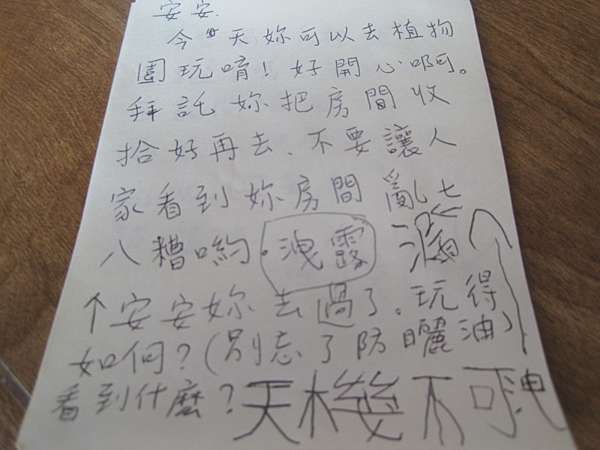 安安
今天妳可以去植物
園玩唷！好開心啊。
拜託妳把房間收
拾好再去、不要讓人
家看到妳房間亂七
八糟喲。洩露
个安安妳去過了。玩得
如何？（別忘了防曬油）
看到什麼？天機不可洩